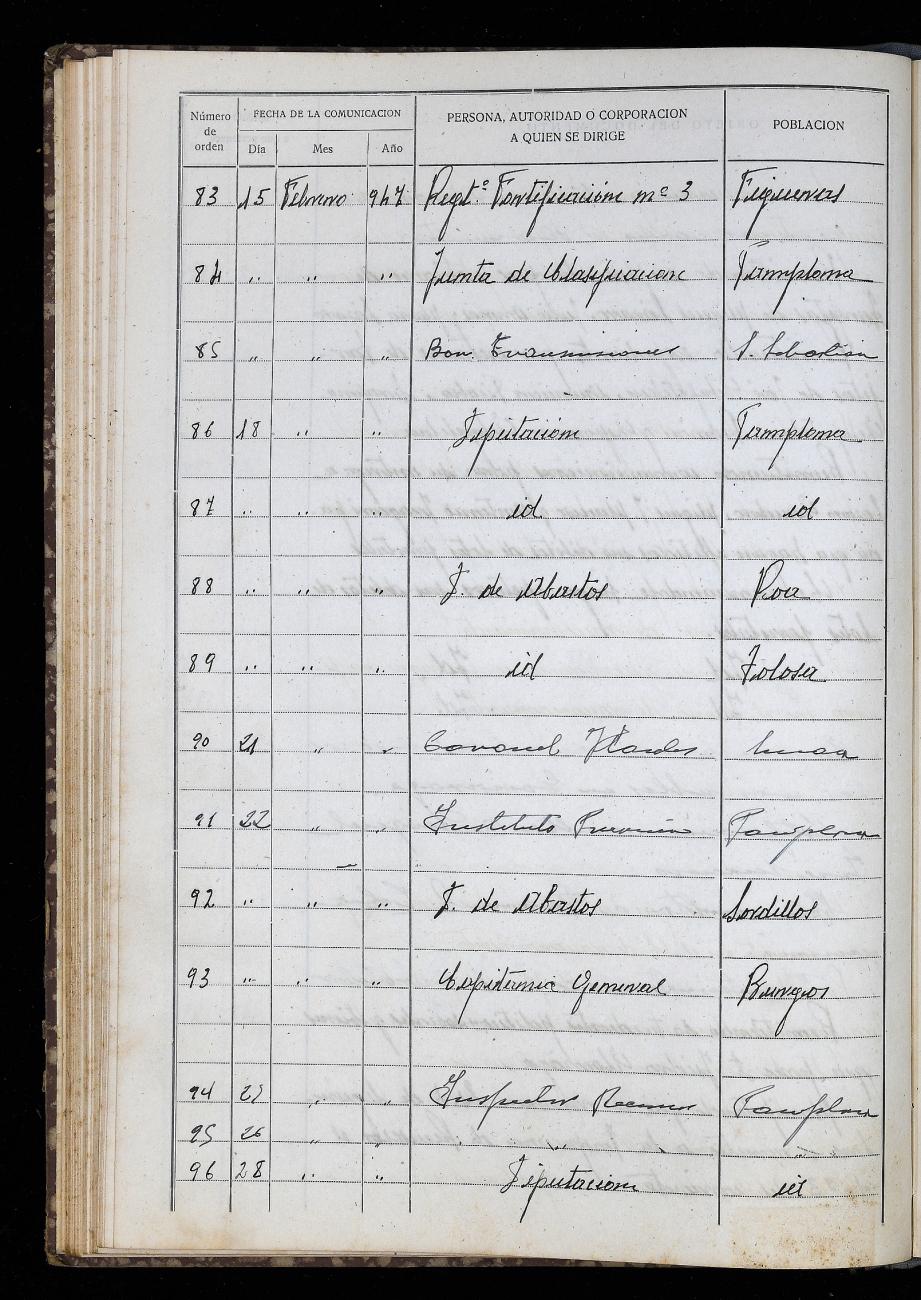 Número de orden FECHA DE LA COMUNICACION PERSONA, AUTORIDAD O CORPORACION A QUIEN SE DIRIGE POBLACION
Día Mes Año
83 15 Febrero 947 Regtº Fortificación nº 3 Figueras
84 " " " Junta de Clasificacion Pamplona
85 " " " Bon. Transmisiones S. Sebastian
86 18 " " Diputación Pamplona
87 " " " id id
88 " " " J. de Abastos Roa
89 " " " id Tolosa
90 21 " " Coronel
91 22 " " Instituto Pamplona
92 " " " J. de Abastos Sordillos
93 " " " Capitania General Burgos
94 " " Inspector Pamplona
95 26 " " " "
96 28 " " Diputacion id